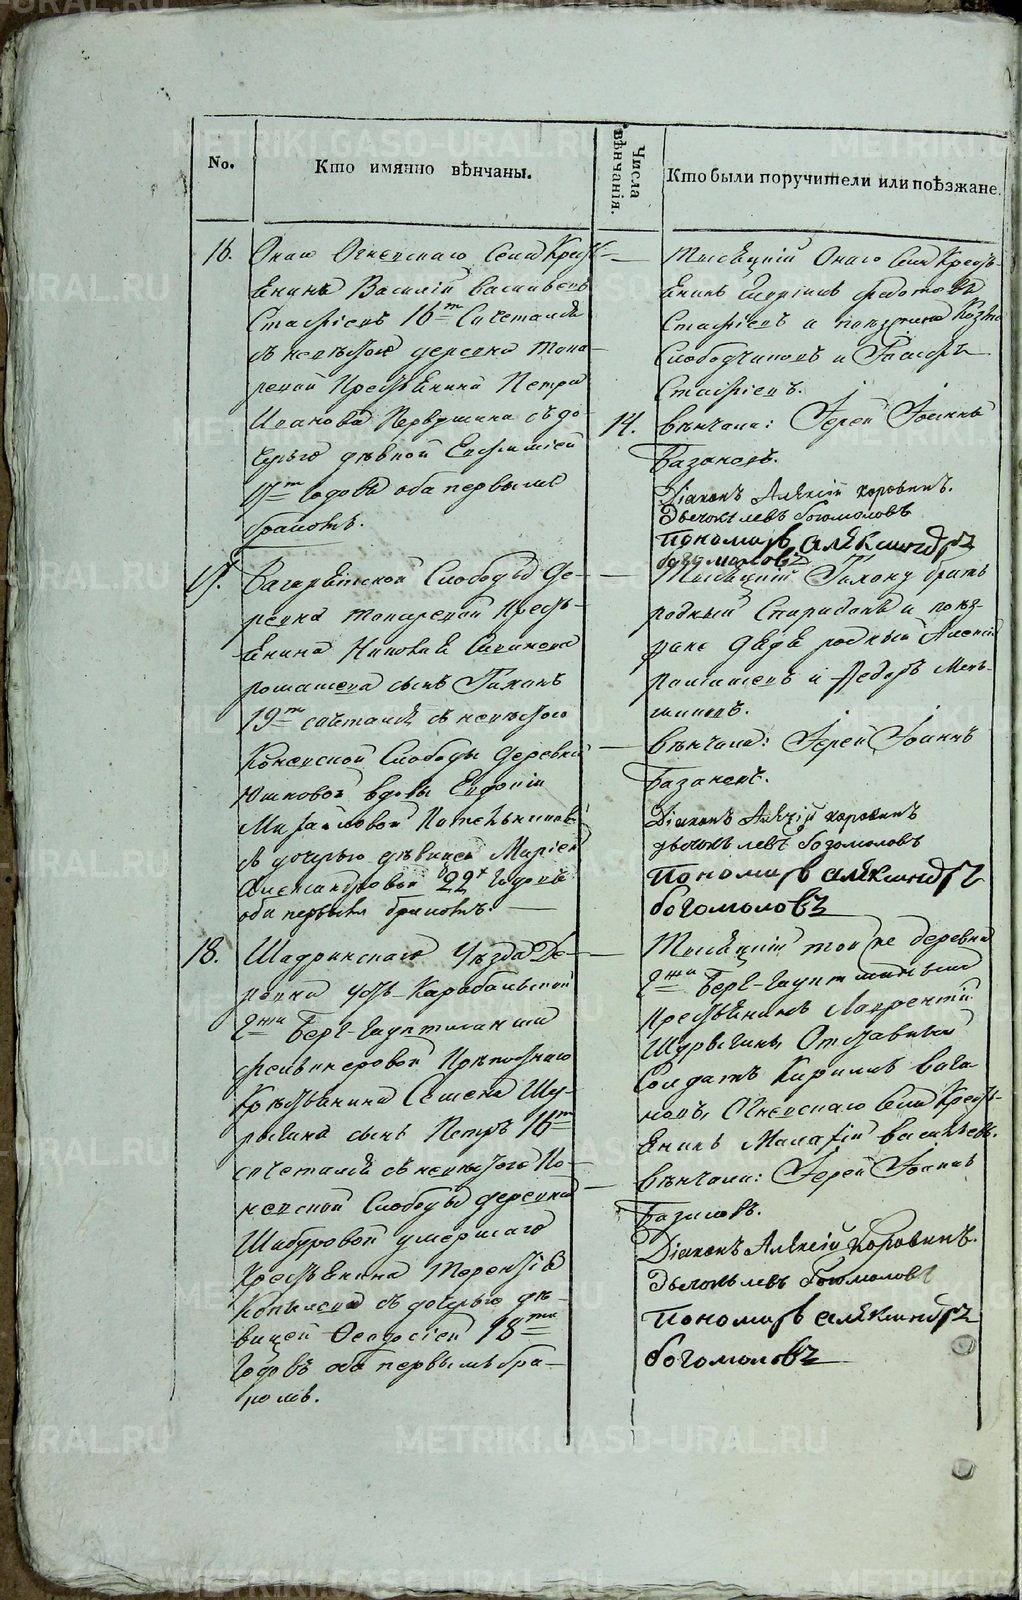 No.
Кто имянно вѣнчаны.
Числа вѣнчанія.
Кто были поручители или поѣзжане.
16. Онаго Огневскаго Села Кресть-
янинъ Василій Васильевъ
16т Сочетался
съ невѣстою деревни Топо-
ревой Крестьянина Петра
Иванова Первушина съ до-
черью дѣвкой Евфимiей
17т Годовъ оба первымъ
бракомъ.
14.
Тысяцкій Онаго Села Кресть-
янинъ
и поѣзжана Козма
Слободчиковъ и
вѣнчали: Іерей Іоаннъ
Базановъ.
Діаконъ Алексій Коровинъ.
Дьячокъ левъ богомоловъ
Пономарь Александръ
богомоловъ
17. Багаряцкой Слободы Де-
ревни Топоревой Кресть-
янина Николая
сынъ Тихонъ
19т сочетался съ невѣстою
Коневской Слободы Деревни
Юшковой вдовы Евдокіи
Михайловой
съ дочерью дѣвицей Маріей
Александровой 22х Годовъ
оба первымъ бракомъ.
Тысяцкій Тихону братъ
родный Спиридонъ и поѣз-
жане дядя родный Алексій
и Ѳедоръ Мень-
шиковъ.
вѣнчали: Іерей Іоаннъ
Базановъ.
Діаконъ Алексій Коровинъ
дьячокъ левъ богомоловъ
Пономарь Александръ
богомоловъ
18. Шадринскаго Уѣзда Де-
ревни Усть-Карабольской
Г-жи Берг-Гауптманши
Крѣпостнаго
Крестьянина Семена Шу-
рыгина сынъ Петръ 16т
сочетался съ невѣстою Ко-
невской Слободы деревни
Шабуровой умершаго
Крестьянина Терентія
Копылова съ дочерью дѣ-
вицей Феодосіей 18ти
Годовъ оба первымъ бра-
комъ.
Тысяцкій той же деревни
Г-жи Берг-Гауптманьши
Крестьянинъ Лаврентій
Шурыгинъ, Отставный
Солдатъ Кирилъ
Огневскаго Села Кресть-
янинъ Малафій Васильевъ.
вѣнчали: Іерей Іоаннъ
Базановъ.
Діаконъ Алексій Коровинъ.
Дьячокъ левъ богомоловъ
Пономарь Александръ
богомоловъ
METRIKI.GASO-URAL.RU